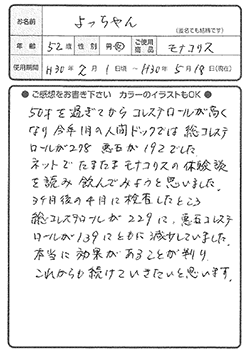 お名前 よっちゃん (匿名でも結構です)
年齢 52歳 性別 男・女 ご使用商品 モナコリス
使用期間 H30年2月1日頃 ～ H30年5月18日(現在)
● ご感想をお書き下さい カラーのイラストもOK ●
50才を過ぎてからコレステロールが高く
なり今年1月の人間ドックでは総コレステ
ロールが298 悪玉が192でした
ネットでたまたまモナコリスの体験談
を読み飲んでみようと思いました。
3ヶ月後の4月に検査したところ
総コレステロールが229に、悪玉コレステ
ロールが139にともに減少していました。
本当に効果があることが判り
これからも続けていきたいと思います。